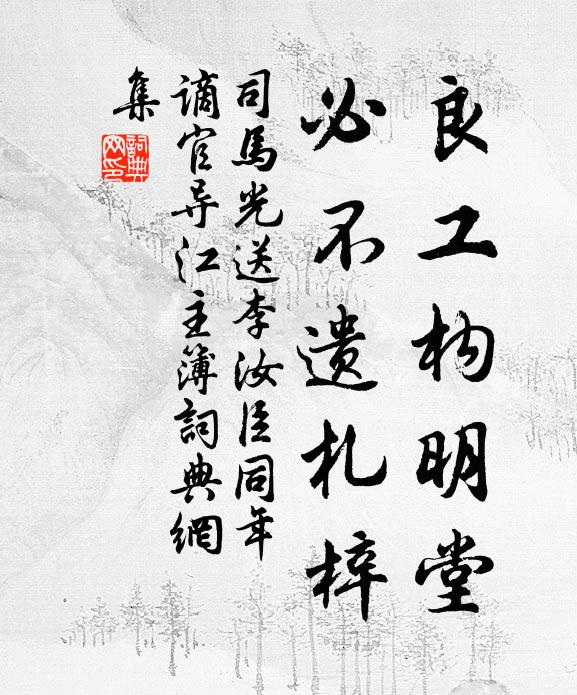 良工构明堂
必不遗札梓
司马光送李汝臣同年
谪官导江主簿词典網
集
詞典
网印